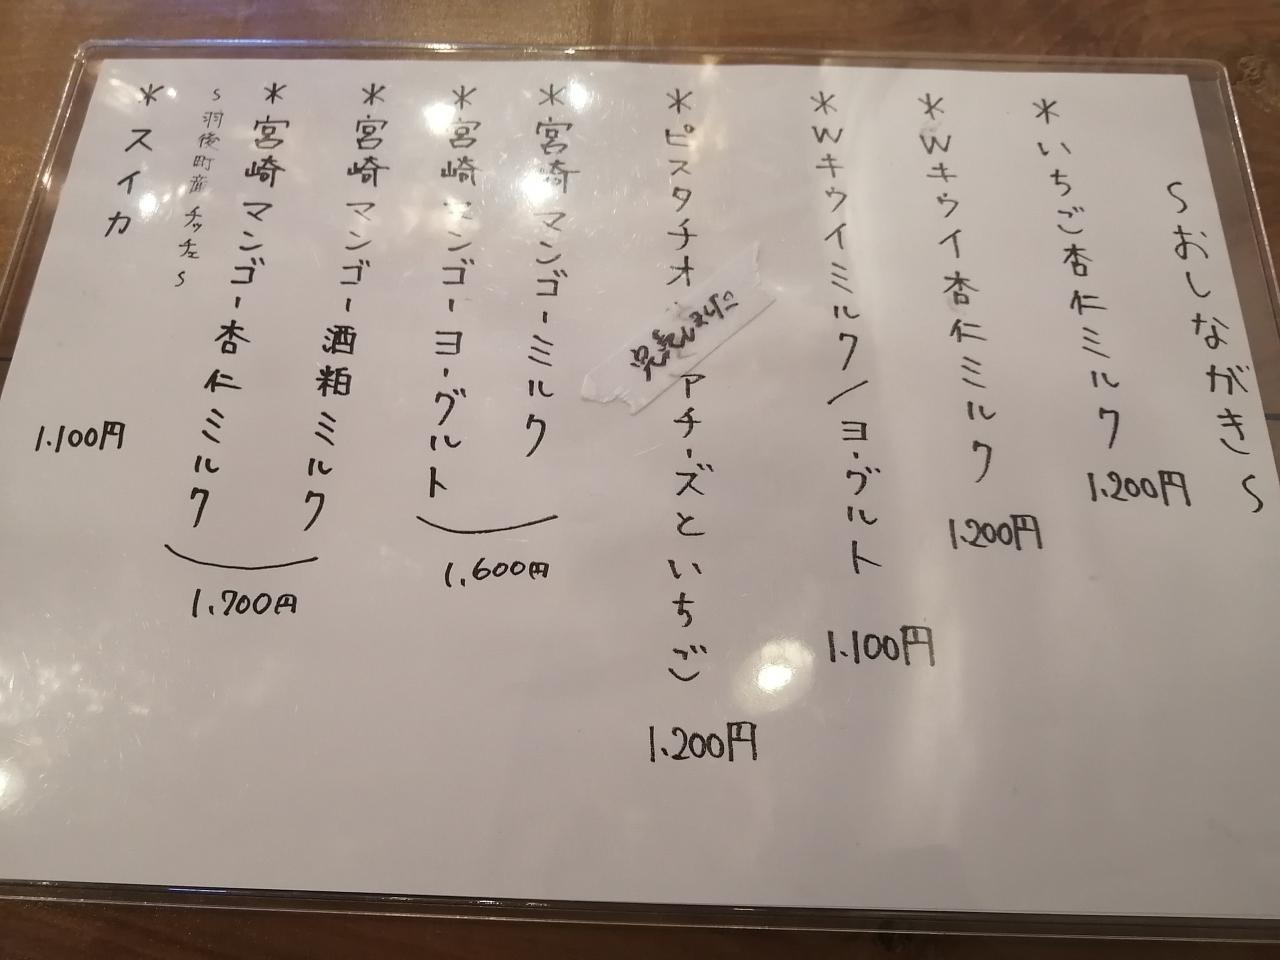 〜おしながき〜
＊いちご杏仁ミルク 1.200円
＊Wキウイ杏仁ミルク 1.200円
＊Wキウイミルク／ヨーグルト 1.100円
＊ピスタチオ アチーズといちご 1.200円
＊宮崎マンゴーミルク
＊宮崎マンゴーヨーグルト
1.600円
＊宮崎マンゴー酒粕ミルク
＊宮崎マンゴー杏仁ミルク
1.700円
〜羽後町産 チッチェ〜
＊スイカ 1.100円